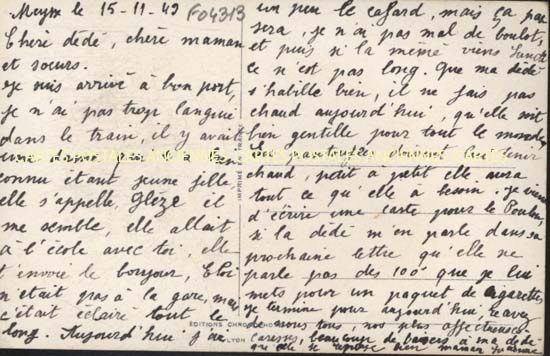 Meyze le 15-11-49
F04313
Chère dédé, chère maman
et soeurs.
Je suis arrivé à bon port,
je n'ai pas trop langui
dans le train, il y avait
connu étant jeune fille,
elle s'appelle, Glèze il
me semble, elle allait
à l'école avec toi, elle
t'envoie le bonjour, Eloi
n'était pas à la gare, mais
c'était éclairé tout le
long. Aujourd'hui j'ai
un peu le cafard, mais ça pas
sera, je n'ai pas mal de boulot,
et puis si la même viens
ce n'est pas long. Que ma dédé
s'habille bien, il ne fais pas
chaud aujourd'hui qu'elle soit
bien gentille pour tout le monde,
les pantoufles doivent lui tenir
chaud, petit à petit elle aura
tout ce qu'elle à besoin. Je viens
d'écrire une carte pour le
si la dédé m'en parle dans sa
prochaine lettre qu'elle ne
parle pas des 100 que je lui
mets pour un paquet de cigarettes
je termine pour aujourd'hui, recevez
vous tous, nos plus affectueuses
caresses, beaucoup de baisers à ma dédé
qu'elle se repose bien
IMPRIMÉ EN
EDITIONS
LYON